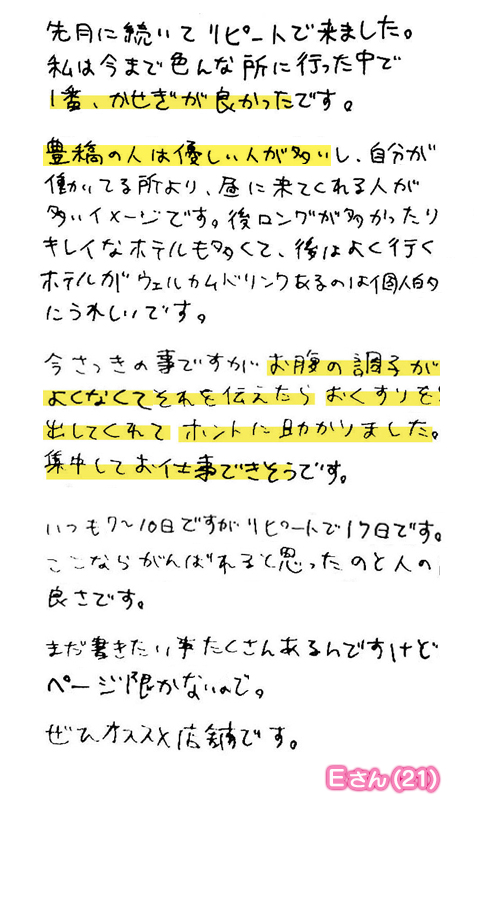 先月に続いてリピートで来ました。
私は今まで色んな所に行った中で
1番、かせぎが良かったです。
豊橋の人は優しい人が多いし、自分が
働いてる所より、昼に来てくれる人が
多いイメージです。後ロングが多かったり
キレイなホテルも多くて、後はよく行く
ホテルがウェルカムドリンクあるのは個人的
にうれしいです。
今さっきの事ですがお腹の調子が
よくなくてそれを伝えたらおくすりを
出してくれてホントに助かりました。
集中してお仕事できそうです。
いつも7〜10日ですがリピートで17日です。
ここならがんばれると思ったのと人の
良さです。
まだ書きたい事たくさんあるんですけど
ページ限かないので。
ぜひオススメ店舗です。
Eさん(21)